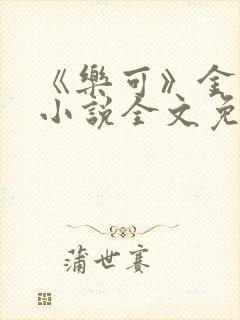 《樂可》金
小說全文免
蒲世賽